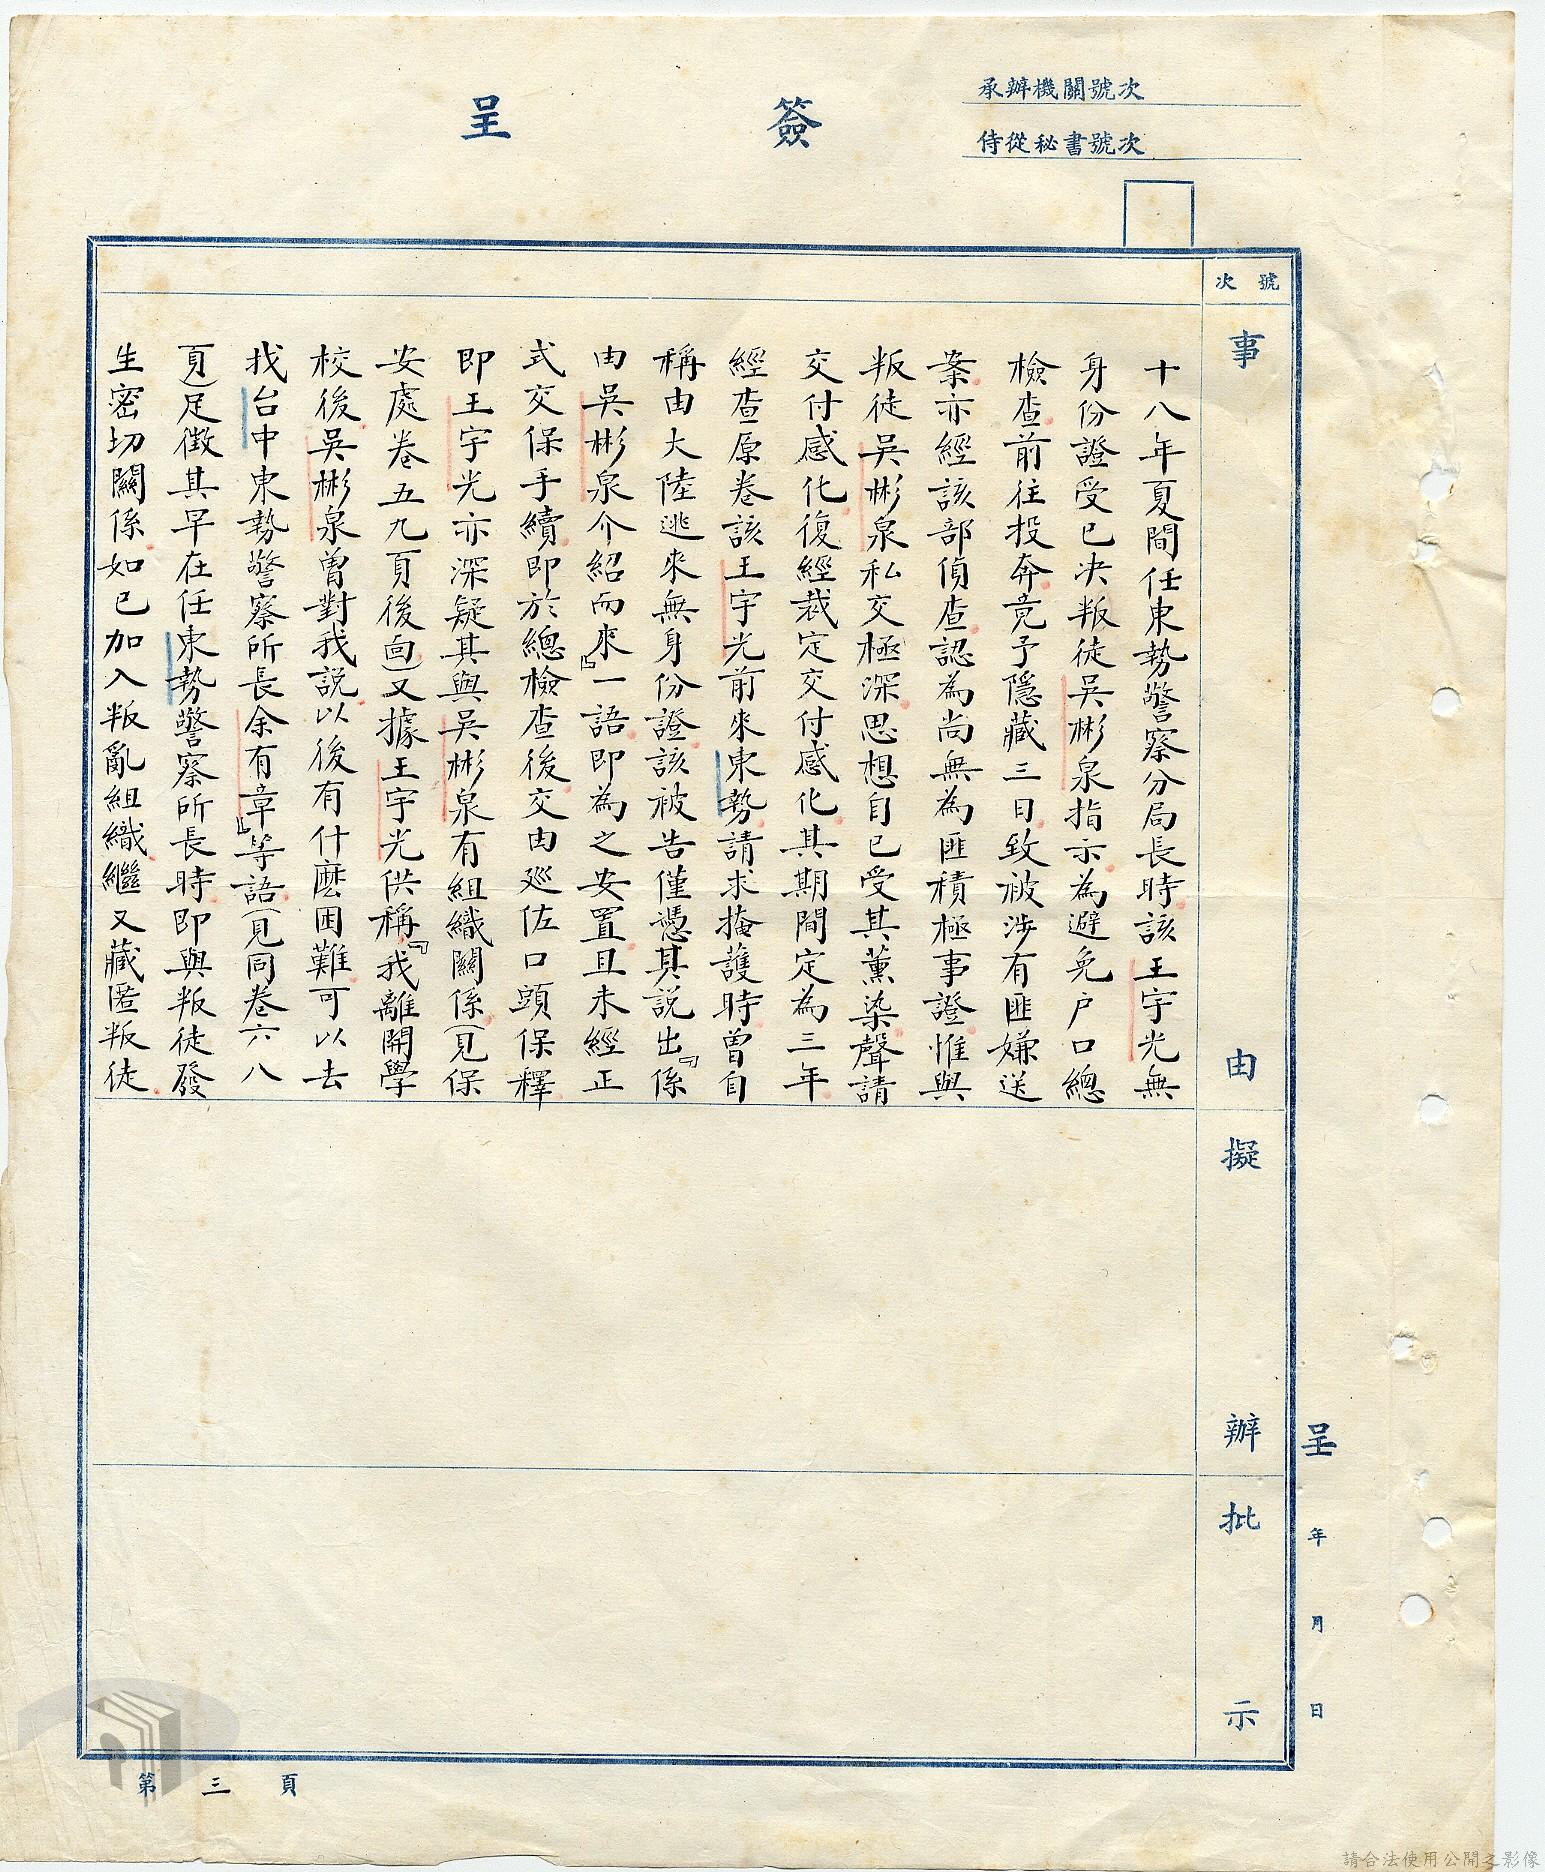 簽呈
承辦機關號次
侍從秘書號次
號次
事由
擬辦
批示
呈 年 月 日
十八年夏間任東勢警察分局長時該王宇光無
身份證受已决叛徒吳彬泉指示為避免户口總
檢查前往投奔竟予隱藏三日致被涉有匪嫌送
案亦經該部偵查認為尚無為匪積極事證惟與
叛徒吳彬泉私交極深思想自已受其薰染聲請
交付感化復經裁定交付感化其期間定為三年
經查原卷該王宇光前來東勢請求掩護時曾自
稱由大陸逃來無身份證該被告僅憑其説出『係
由吳彬泉介紹而來』一語即為之安置且未經正
式交保手續即於總檢查後交由廵佐口頭保釋
即王宇光亦深疑其與吳彬泉有組織關係(見保
安處卷五九頁後面)又據王宇光供稱『我離開學
校後吳彬泉曾對我説以後有什麽困難可以去
找台中東勢警察所長余有章』等語(見同卷六八
頁)足徵其早在任東勢警察所長時即與叛徒發
生密切關係如已加入叛亂組織繼又藏匿叛徒
第三頁
請合法使用公開之影像